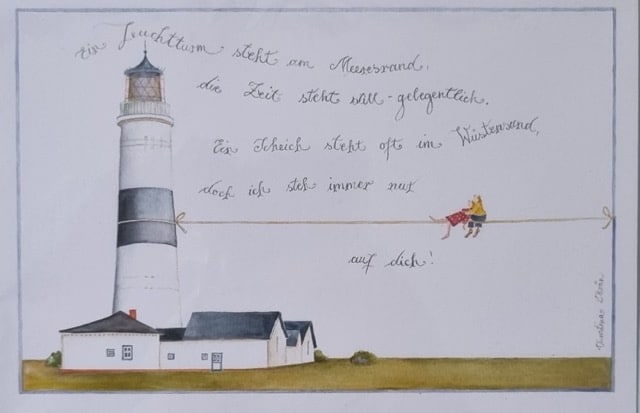 Ein Leuchtturm steht am Meeresrand,
die Zeit steht still - gelegentlich.
Ein Scheich steht oft im Wüstensand,
doch ich steh immer nur
auf dich!